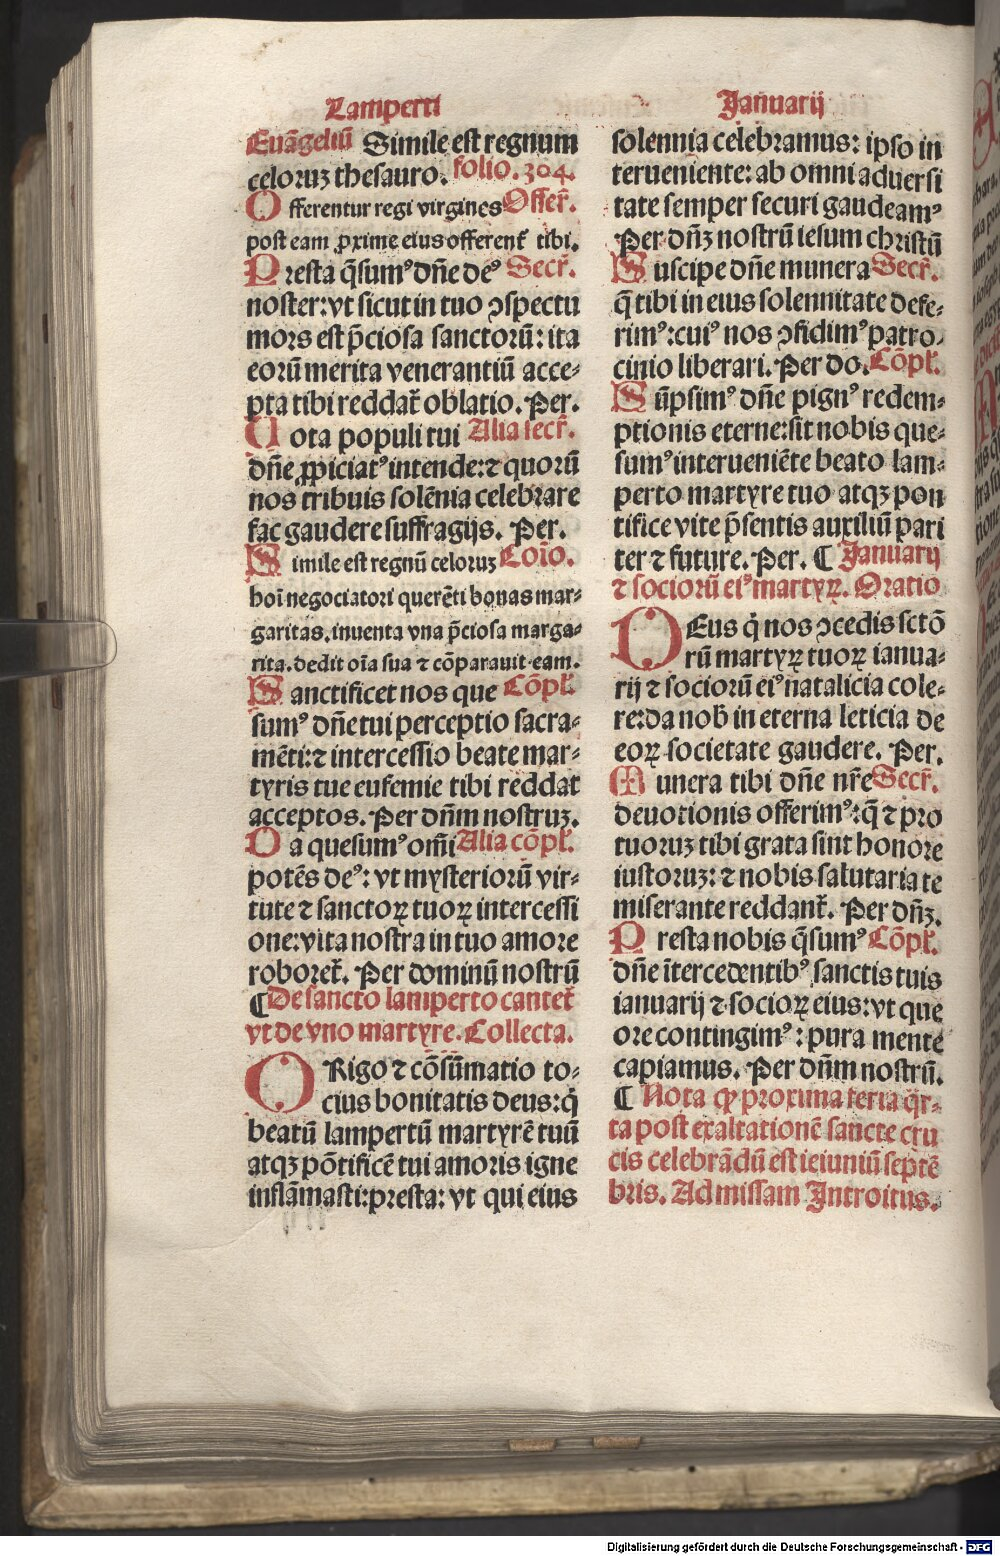 Lamperti
Januarij
Euāgeliū Simile est regnum
celoruꝫ thesauro. folio. 304.
Offerentur regi virgines Offer̄.
post eam ꝓxime eius offerent̄ tibi.
Presta q̄sumꝰ dn̄e deꝰ Secr̄.
noster: vt sicut in tuo ↄspectu
mors est p̄ciosa sanctorū: ita
eorū merita venerantiū acce-
pta tibi reddat̄ oblatio. Per.
Uota populi tui Alia secr̄.
dn̄e ꝓpiciatꝰ intende: ⁊ quorū
nos tribuis solēnia celebrare
fac gaudere suffragijs. Per.
Simile est regnū celoruꝫ Coīo.
hoī negociatori querēti bonas mar-
garitas. inuenta vna p̄ciosa marga-
rita. dedit oīa sua ⁊ cōparauit eam.
Sanctificet nos que Cōpl̄.
sumꝰ dn̄e tui perceptio sacra-
mēti: ⁊ intercessio beate mar-
tyris tue eufemie tibi reddat
acceptos. Per dn̄m nostruꝫ.
Da quesumꝰ om̄i Alia cōpl̄.
potēs deꝰ: vt mysteriorū vir-
tute ⁊ sanctoꝝ tuoꝝ intercessi
one: vita nostra in tuo amore
roboret̄. Per dominū nostrū
¶ De sancto lamperto cantet̄
vt de vno martyre. Collecta.
ORigo ⁊ cōsūmatio to-
cius bonitatis deus: q̄
beatū lampertū martyrē tuū
atqꝫ pōtificē tui amoris igne
inflāmasti: presta: vt qui eius
solennia celebramus: ipso in
terueniente: ab omni aduersi
tate semper securi gaudeamꝰ
Per dn̄ꝫ nostrū iesum christū
Suscipe dn̄e munera Secr̄.
q̄ tibi in eius solennitate defe-
rimꝰ: cuiꝰ nos ↄfidimꝰ patro-
cinio liberari. Per do. Cōpl̄.
Sūpsimꝰ dn̄e pignꝰ redem-
ptionis eterne: sit nobis que-
sumꝰ interueniēte beato lam-
perto martyre tuo atqꝫ pon
tifice vite p̄sentis auxiliū pari
ter ⁊ future. Per. ¶ Januarij
⁊ socioruū eiꝰ martyꝝ. Oratio
DEus q̄ nos ↄcedis sctō
rū martyꝝ tuoꝝ ianua-
rij ⁊ sociorū eiꝰ natalicia cole-
re: da nob̄ in eterna leticia de
eoꝝ societate gaudere. Per.
Munera tibi dn̄e nr̄e Secr̄.
deuotionis offerimꝰ: q̄ ⁊ pro
tuoruꝫ tibi grata sint honore
iustoruꝫ: ⁊ nobis salutaria te
miserante reddant̄. Per dn̄ꝫ.
Presta nobis q̄sumꝰ Cōpl̄.
dn̄e ītercedentibꝰ sanctis tuis
ianuarij ⁊ socioꝝ eius: vt que
ore contingimꝰ: pura mente
capiamus. Per dn̄m nostrū.
¶ Nota ꝙ proxima feria q̄r-
ta post exaltationē sancte cru
cis celebrādū est ieiuniū septē
bris. Ad missam Introitus.
Digitalisierung gefördert durch die Deutsche Forschungsgemeinschaft - DFG